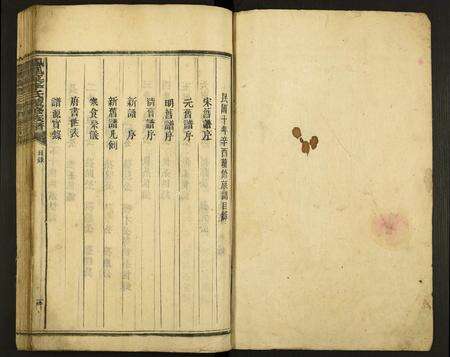 民國十年辛酉重修原譜目錄
宋舊譜序
元舊譜序
明舊譜序
清舊譜序
新譜序
新舊譜凡例
寒食祭儀
唐書世表
譜源實錄
目錄